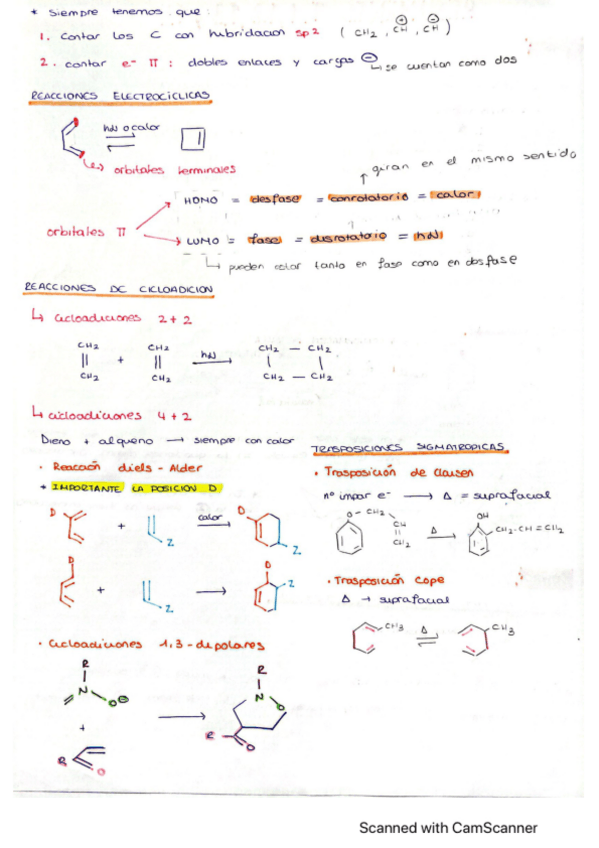 * Siempre tenemos que:
1. Contar los C con hibridacion sp2 ( CH2 , CH⊕ , CH⊖ )
2. contar e- π : dobles enlaces y cargas ⊖ ↳ se cuentan como dos
REACCIONES ELECTROCÍCLICAS
hν o calor
orbitales terminales
giran en el mismo sentido
HOMO = desfase = conrotatorio = calor
orbitales π
LUMO = fase = disrotatorio = hν
↳ pueden estar tanto en fase como en desfase
REACCIONES DE CICLOADICION
↳ Cicloadiciones 2 + 2
CH2 CH2 CH2 — CH2
|| + || hν
CH2 CH2 CH2 — CH2
↳ cicloadiciones 4 + 2
Dieno + alqueno → siempre con calor
· Reacción diels - Alder
* IMPORTANTE LA POSICION D
D + Z calor D Z
D + Z → D Z
· Cicloadiciones 1,3 - dipolares
R
N
O⊖
+
R
O
R
N
O
R
O
TRASPOSICIONES SIGMATROPICAS
· Trasposición de Claisen
nº impar e- → Δ = suprafacial
O - CH2
CH
||
CH2
Δ
OH
CH2-CH=CH2
· Trasposición Cope
Δ → suprafacial
CH3 Δ CH3
Scanned with CamScanner